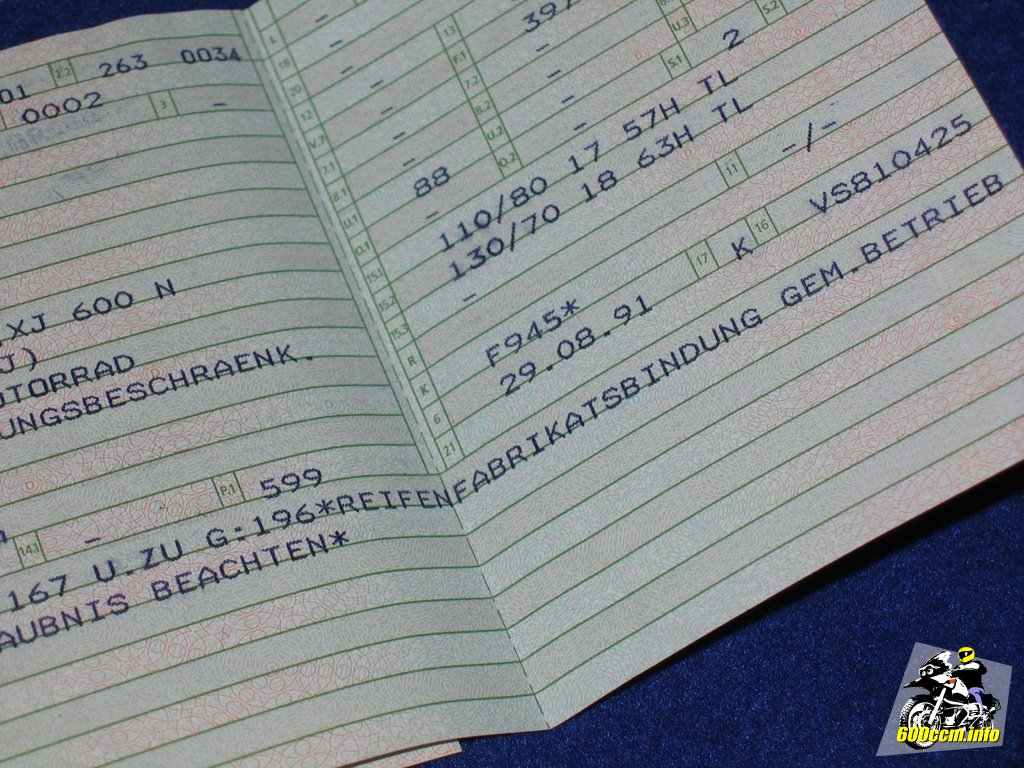 01 2.2 263 0034
0002 3 -
XJ 600 N
J)
OTORRAD
UNGSBESCHRAENK.
14.1 - P.1 599
167 U.ZU G:196*REIFENFABRIKATSBINDUNG GEM.BETRIEB
AUBNIS BEACHTEN*
L -
18 - 13 397
20 - F.1 -
12 - 7.2 - U.3
V.7 - 8.2 - S.1 2 S.2
7.1 - U.2 -
8.1 88 O.2 -
U.1 -
O.1 110/80 17 57H TL
15.1 130/70 18 63H TL
15.2 - 11 -/-
15.3
R F945* 17 K 16 VS810425
K 29.08.91
6
21
600ccm.info